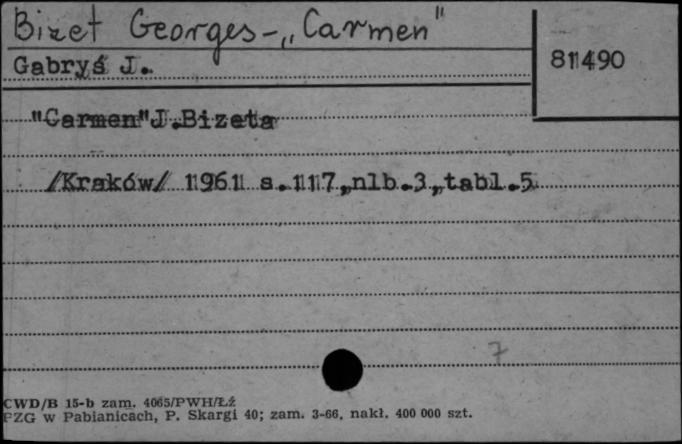 Bizet Georges-„Carmen"
Gabryś J.
811490
"Carmen"J.Bizeta
/Kraków/ 1961 s.117,nlb.3,tabl.5
7
CWD/B 15-b zam. 4065/PWH/Łź
PZG w Pabianicach, P. Skargi 40; zam. 3-66, nakł. 400 000 szt.